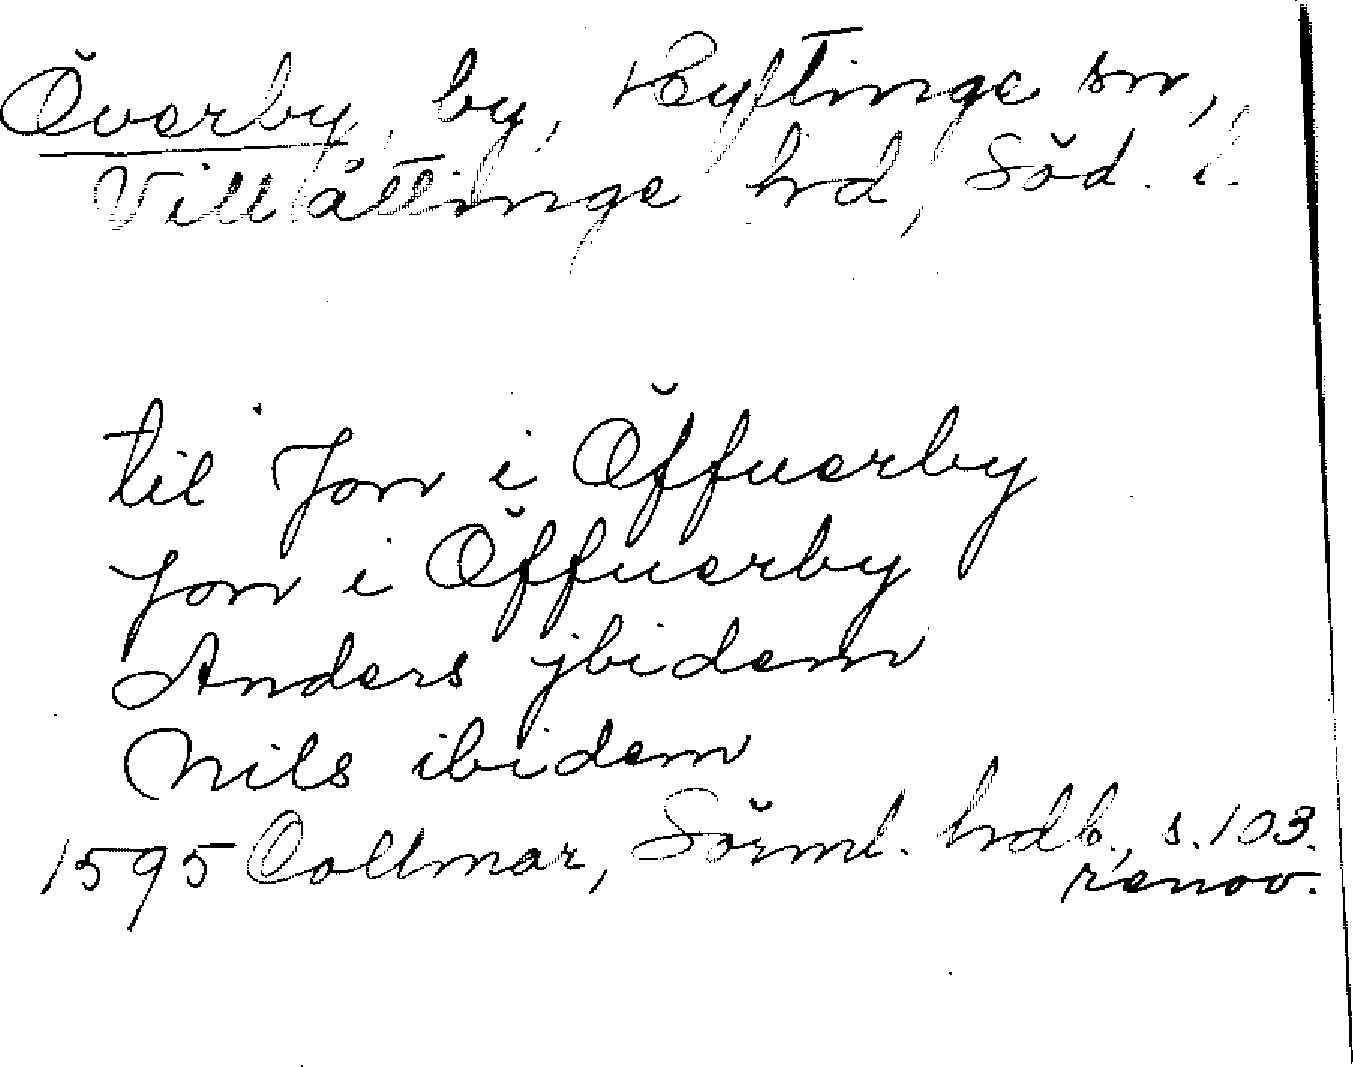 Överby, by, Heljtinge sn,
Villåttinge hd, Söd. l.
til Jon i Öffuerby
Jon i Öffuerby
Anders jbidem
Nils ibidem
1595 Collmar, Sörml. hdb., s. 103.
renov.